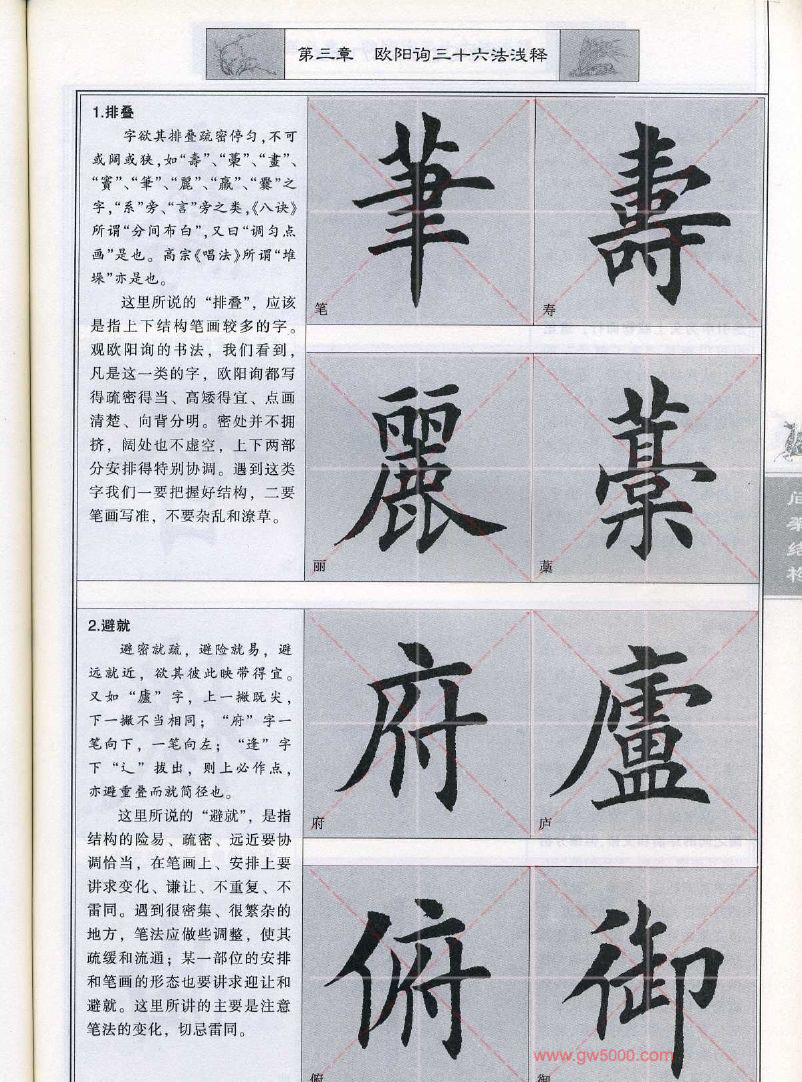 第三章 欧阳询三十六法浅释
1.排叠
字欲其排叠疏密停匀,不可
或阔或狭,如“壽”、“藁”、“畫”、
“寳”、“筆”、“麗”、“羸”、“爨”之
字,“系”旁、“言”旁之类,《八诀》
所谓“分间布白”,又曰“调匀点
画”是也。高宗《唱法》所谓“堆
垛”亦是也。
这里所说的“排叠”，应该
是指上下结构笔画较多的字。
观欧阳询的书法，我们看到，
凡是这一类的字，欧阳询都写
得疏密得当、高矮得宜、点画
清楚、向背分明。密处并不拥
挤，阔处也不虚空，上下两部
分安排得特别协调。遇到这类
字我们一要把握好结构，二要
笔画写准，不要杂乱和潦草。
筆
笔
壽
寿
麗
丽
藁
藁
2.避就
避密就疏，避险就易，避
远就近，欲其彼此映带得宜。
又如“廬”字，上一撇既尖，
下一撇不当相同；“府”字一
笔向下，一笔向左；“逢”字
下“辶”拔出，则上必作点，
亦避重叠而就简径也。
这里所说的“避就”，是指
结构的险易、疏密、远近要协
调恰当，在笔画上、安排上要
讲求变化、谦让、不重复、不
雷同。遇到很密集、很繁杂的
地方，笔法应做些调整，使其
疏缓和流通；某一部位的安排
和笔画的形态也要讲求迎让和
避就。这里所讲的主要是注意
笔法的变化，切忌雷同。
府
府
廬
庐
俯
俯
御
御
结
www.gw5000.com